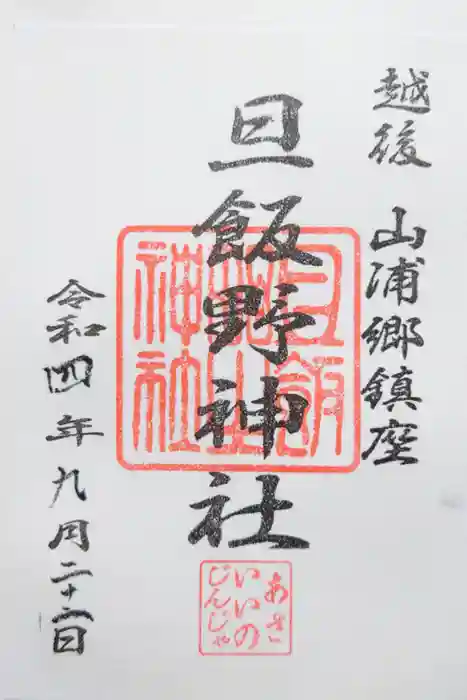 越後 山浦郷鎮座
旦飯野神社
旦飯野
神社
あさ
いいの
じんじゃ
令和四年九月二十二日